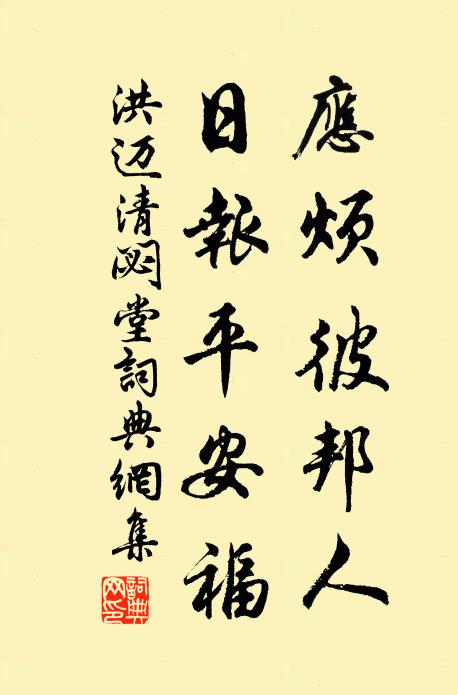 應煩彼邦人
日報平安福
洪迈清閟堂詞典網集
詞典網印